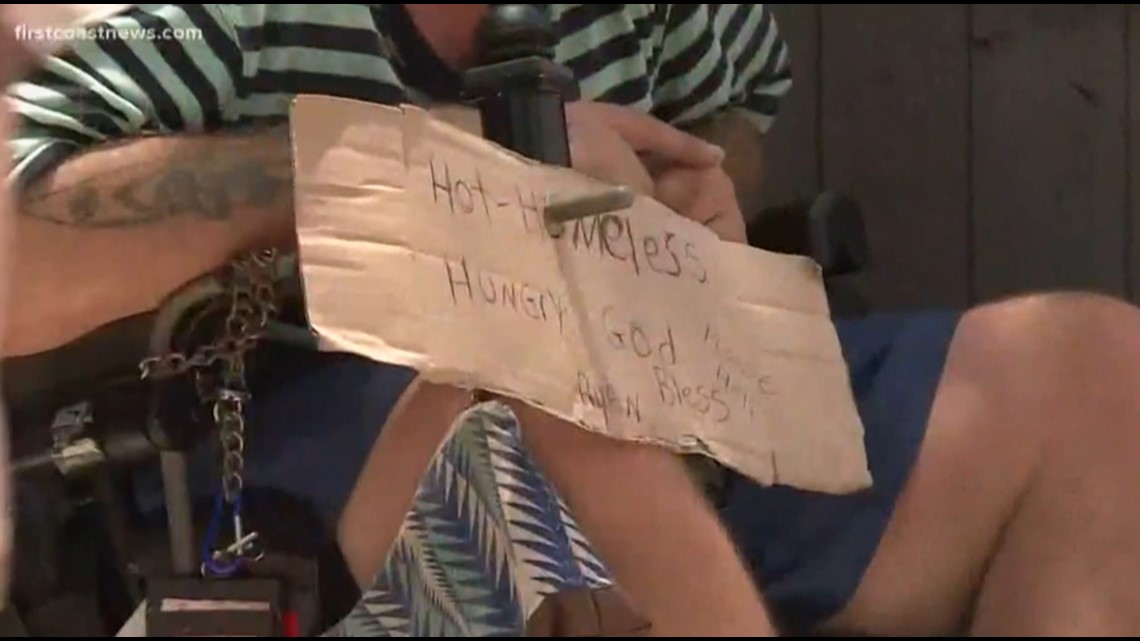 firstcoastnews.com
HOt-HOMeless
HUNGrY GOd
RYAN Bless